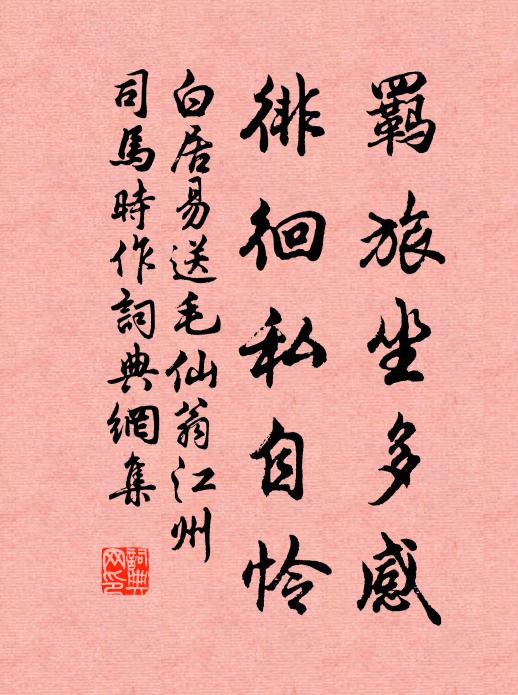 羈旅坐多感
徘徊私自怜
白居易送毛仙翁江州
司馬時作詞典網集
詞典
网印